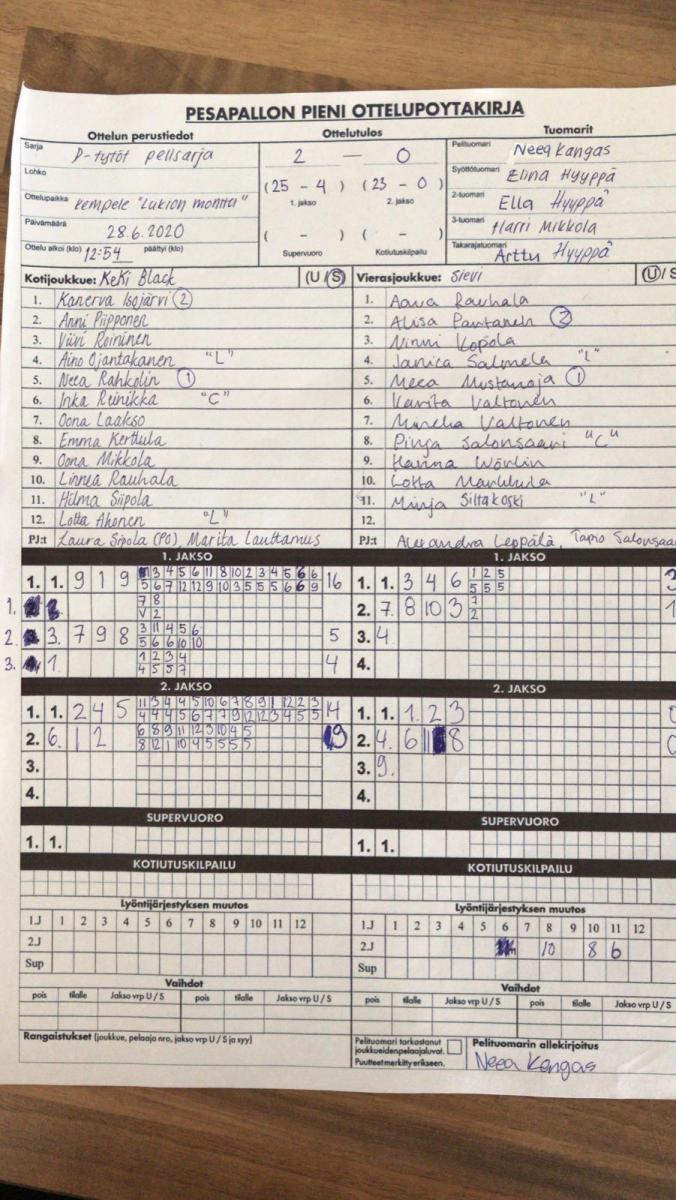 PESAPALLON PIENI OTTELUPOYTAKIRJA
Ottelun perustiedot
Ottelutulos
Tuomarit
Sarja D-tytöt pelisarja
2 — 0
Pelituomari Neea Kangas
Lohko
(25 - 4) (23 - 0)
1. jakso 2. jakso
Syöttötuomari Elina Hyyppä
Ottelupaikka Kempele "Lukion monttu"
2-tuomari Ella Hyyppä
Päivämäärä 28.6.2020
( - ) ( - )
3-tuomari Harri Mikkola
Ottelu alkoi (klo) 12:54 päättyi (klo)
Supervuoro Kotiutuskilpailu
Takarajatuomari Arttu Hyyppä
Kotijoukkue: KeKi Black (U / S)
Vierasjoukkue: Sievi (U / S
1. Kanerva Isojärvi 2
1. Aava Rauhala
2. Anni Piipponen
2. Alisa Pantanen 2
3. Viivi Roininen
3. Ninni Kopola
4. Aino Ojantakanen "L"
4. Janica Salmela "L"
5. Neea Rahkolin 1
5. Meea Mustanoja 1
6. Inka Reinikka "C"
6. Karita Valtonen
7. Oona Laakso
7. Minela Valtonen
8. Emma Kerttula
8. Pinja Salonsaari "C"
9. Oona Mikkola
9. Hanna Wörlin
10. Linnea Rauhala
10. Lotta Markkula
11. Hilma Siipola
11. Minja Siltakoski "L"
12. Lotta Ahonen "L"
12.
PJ:t Laura Sipola (PO), Marita Lauttamus
PJ:t Alexandra Leppälä, Tapio Salonsaa
1. JAKSO
1. JAKSO
1. 1. 9 1 9 3 4 5 6 11 8 10 2 3 4 5 6 6 16
5 6 7 12 12 9 10 3 5 5 5 6 9
1. 1. 3 4 6 1 2 5 3
5 5 5
1. 7 8
V 2
2. 7. 8 10 3 7 1
2
2. 3. 7 9 8 3 11 4 5 6 5
5 6 6 10 10
3. 4
3. 1. 1 2 3 4 4
4 5 5 7
4.
2. JAKSO
2. JAKSO
1. 1. 2 4 5 11 3 4 4 5 10 6 7 8 9 1 12 2 3 14
4 4 4 5 6 7 7 9 12 12 3 4 5 5
1. 1. 1. 2 3 0
2. 6. 1 2 6 8 9 11 12 3 10 4 5 9
8 12 1 10 4 5 5 5 5
2. 4. 6 11 8 0
3.
3. 9.
4.
4.
SUPERVUORO
SUPERVUORO
1. 1.
1. 1.
KOTIUTUSKILPAILU
KOTIUTUSKILPAILU
Lyöntijärjestyksen muutos
Lyöntijärjestyksen muutos
1.J 1 2 3 4 5 6 7 8 9 10 11 12
1.J 1 2 3 4 5 6 7 8 9 10 11 12
2.J
2.J 10 8 6
Sup
Sup
Vaihdot
Vaihdot
pois tilalle Jakso vrp U / S pois tilalle Jakso vrp U / S
pois tilalle Jakso vrp U / S pois tilalle Jakso vrp U /
Rangaistukset (joukkue, pelaaja nro, jakso vrp U / S ja syy)
Pelituomari tarkastanut
joukkueidenpelaajaluvat.
Puutteet merkitty erikseen.
Pelituomarin allekirjoitus
Neea Kangas